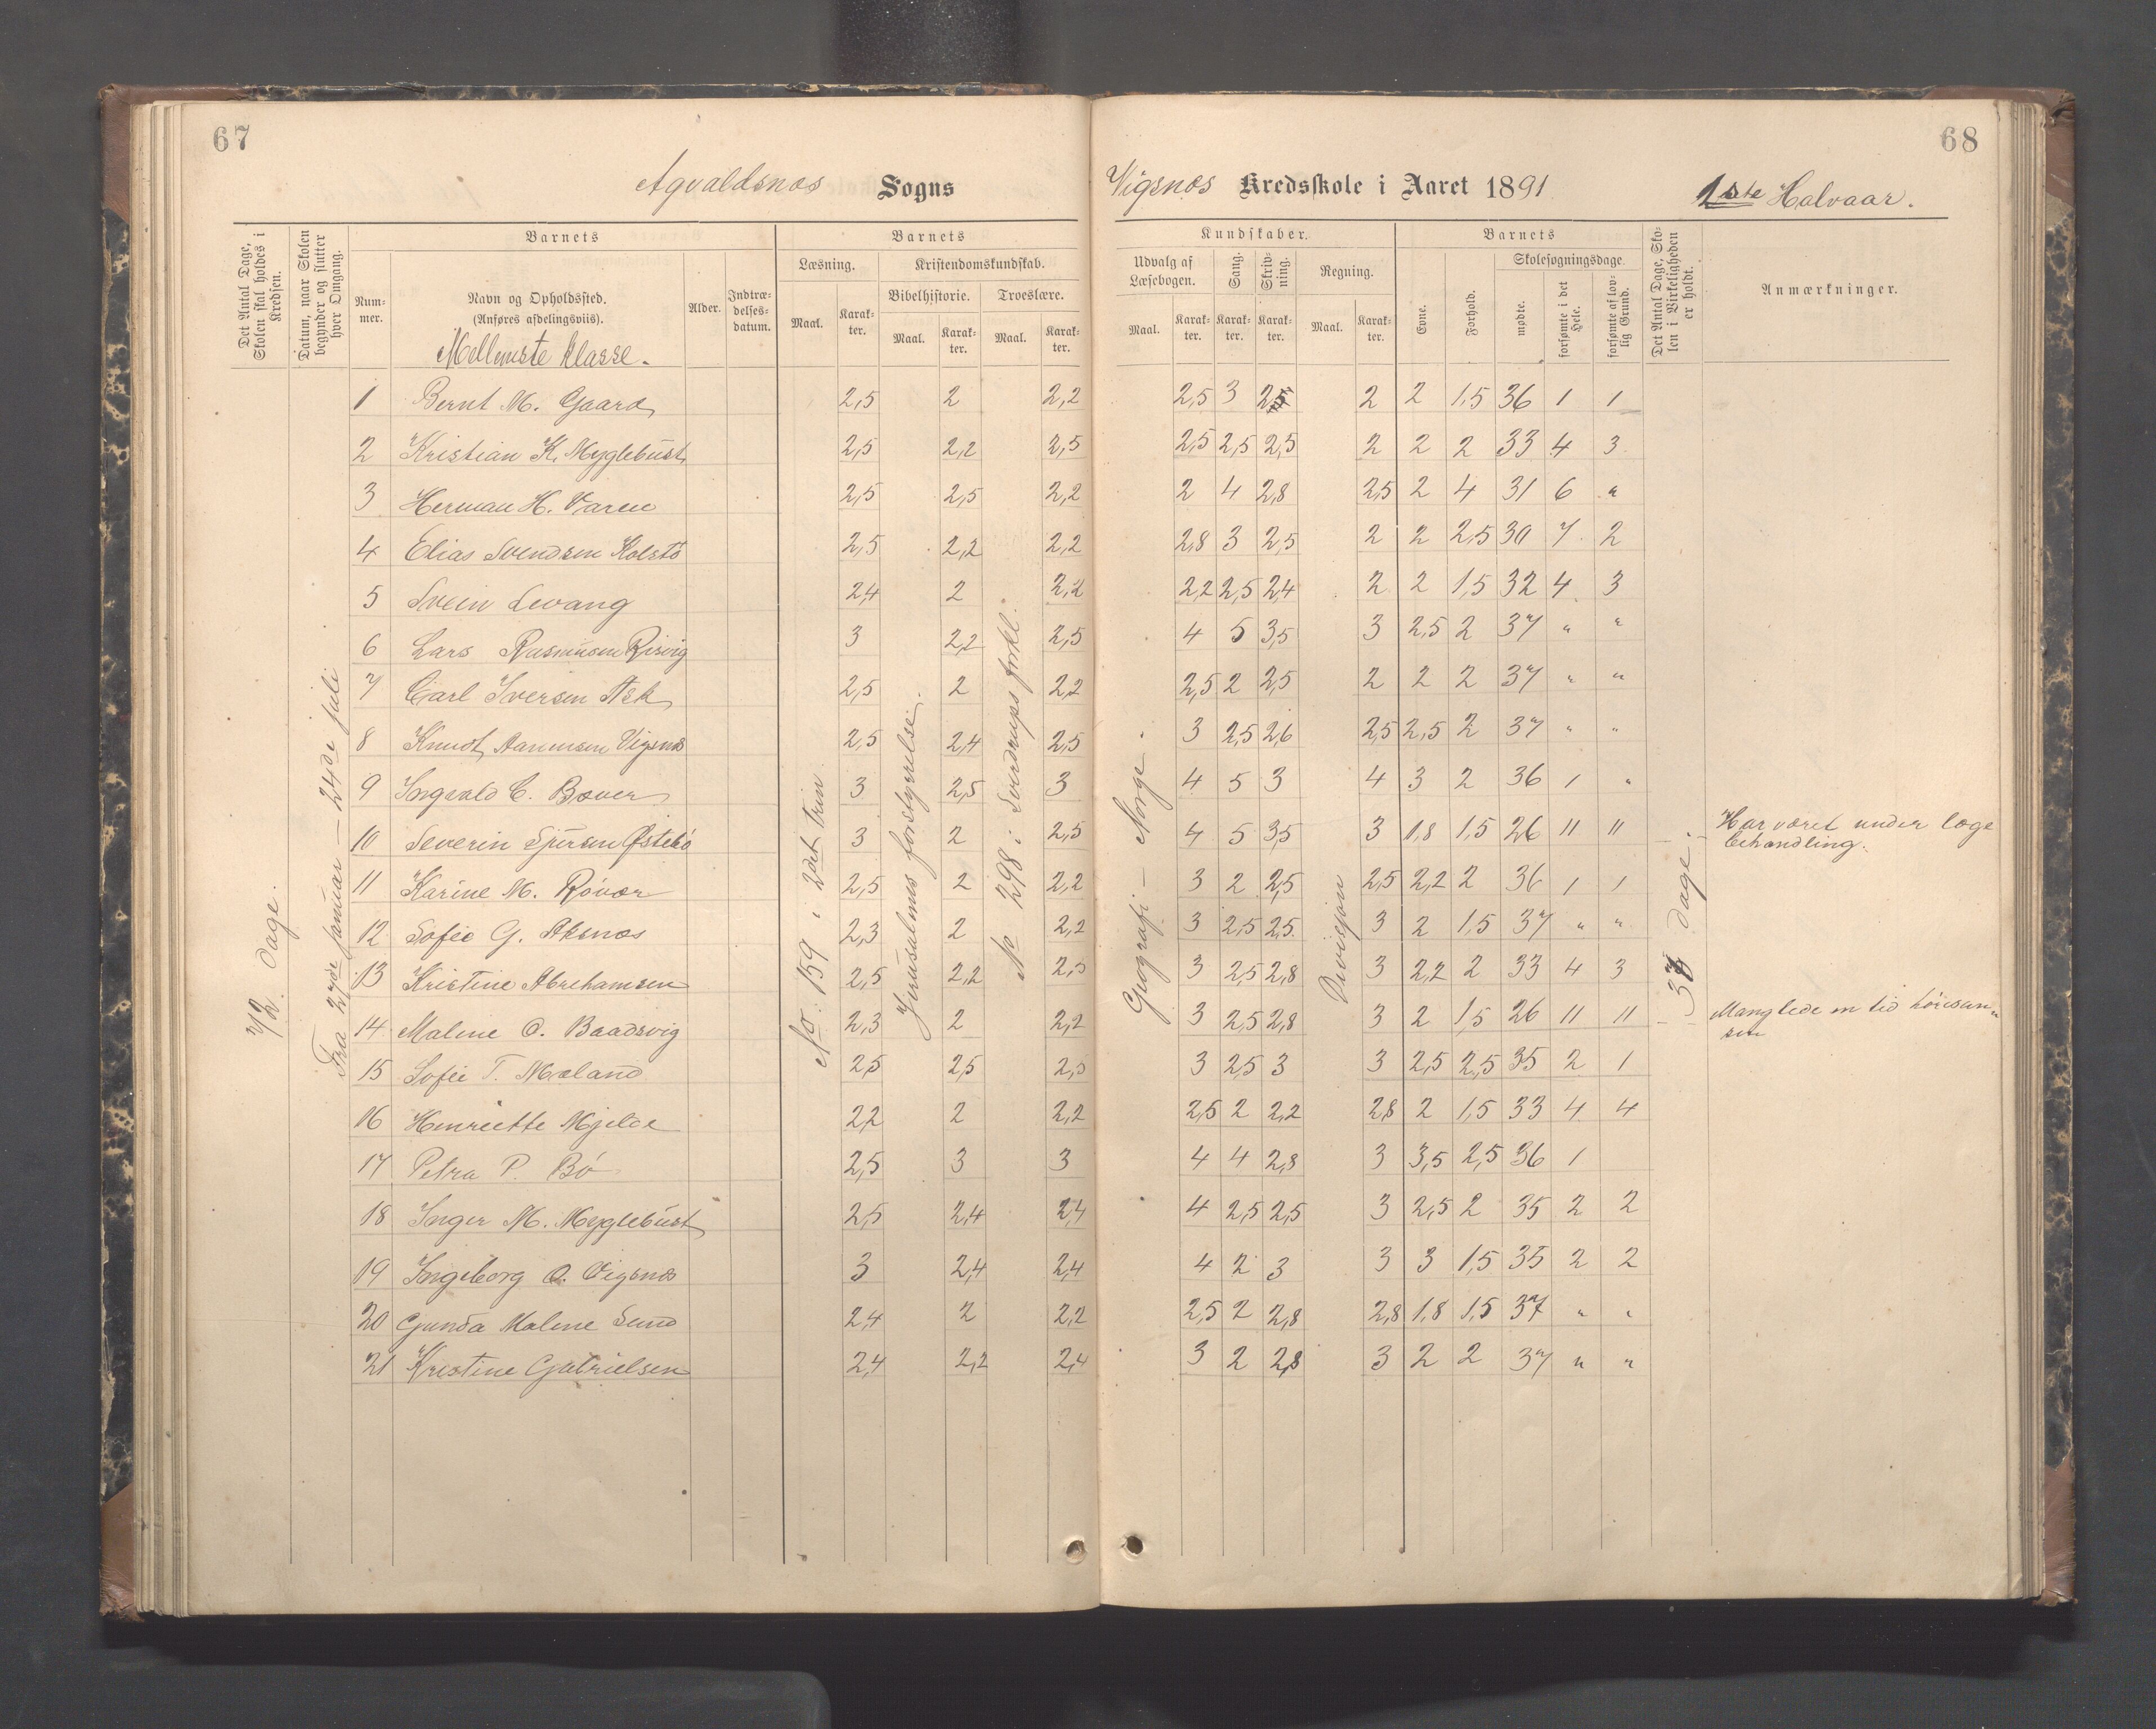 67
68
Agvaldsnæs Sogns
Vigsnæs Kredsskole i Aaret 1891
1ste Halvaar.
Det Antal Dage, Skolen skal holdes i Kredsen.
Datum, naar Skolen begynder og slutter hver Omgang.
Barnets
Barnets
Kundskaber.
Barnets
Det Antal Dage, Skolen i Virkeligheden er holdt.
Anmærkninger.
Nummer.
Navn og Opholdssted.
(Anføres afdelingsviis).
Mellemste klasse.
Alder.
Indtrædelsesdatum.
Læsning.
Kristendomskundskab.
Bibelhistorie.
Troeslære.
Udvalg af Læsebogen.
Sang.
Skrivning.
Regning.
Evne.
Forhold.
Skolesøgningsdage.
mødte.
forsømte i det Hele.
forsømte af lovlig Grund.
Maal. Karakter. Maal. Karakter. Maal. Karakter.
Maal. Karakter. Karakter. Karakter. Maal. Karakter.
72 dage.
Fra 27de januar — 24de juli
No 159 i 2det trin
Jerusalems forstyrrelse.
No 298 i Sverdrups forkl.
Geografi — Norge.
Divisjon
37 dage.
1 Bernt M. Gaard 2,5 2 2,2 2,5 3 2,5 2 2 1,5 36 1 1
2 Kristian K. Myglebust 2,5 2,2 2,5 2,5 2,5 2,5 2 2 2 33 4 3
3 Herman H. Varne 2,5 2,5 2,2 2 4 2,8 2,5 2 4 31 6 "
4 Elias Svendsen Kolstö 2,5 2,2 2,2 2,8 3 2,5 2 2 2,5 30 7 2
5 Svein Levang 2,4 2 2,2 2,2 2,5 2,4 2 2 1,5 32 4 3
6 Lars Rasmusen Risvig 3 2,2 2,5 4 5 3,5 3 2,5 2 37 " "
7 Carl Iversen Ask 2,5 2 2,2 2,5 2 2,5 2 2 2 37 " "
8 Knudt Aanensen Vigsnæs 2,5 2,4 2,5 3 2,5 2,6 2,5 2,5 2 37 " "
9 Ingvald C. Bover 3 2,5 3 4 5 3 4 3 2 36 1 "
10 Severin Sjursen Østebö 3 2 2,5 4 5 3,5 3 1,8 1,5 26 11 11 Har været under læge behandling.
11 Karine M. Rövær 2,5 2 2,2 3 2 2,5 2,5 2,2 2 36 1 1
12 Sofie G. Aksnæs 2,3 2 2,2 3 2,5 2,5 3 2 1,5 37 " "
13 Kristine Abrehamsen 2,5 2,2 2,5 3 2,5 2,8 3 2,2 2 33 4 3
14 Maline O. Baadsvig 2,3 2 2,2 3 2,5 2,8 3 2 1,5 26 11 11 Manglede en tid höresansen
15 Sofie T. Mæland 2,5 2,5 2,5 3 2,5 3 3 2,5 2,5 35 2 1
16 Henriette Mjelde 2,2 2 2,2 2,5 2 2,2 2,8 2 1,5 33 4 4
17 Petra P. Bö 2,5 3 3 4 4 2,8 3 3,5 2,5 36 1
18 Inger M. Myglebust 2,5 2,4 2,4 4 2,5 2,5 3 2,5 2 35 2 2
19 Ingeborg O. Vigsnæs 3 2,4 2,4 4 2 3 3 3 1,5 35 2 2
20 Gunda Malene Sund 2,4 2 2,2 2,5 2 2,8 2,8 1,8 1,5 37 " "
21 Kristine Gabrielsen 2,4 2,2 2,4 3 2 2,8 3 2 2 37 " "